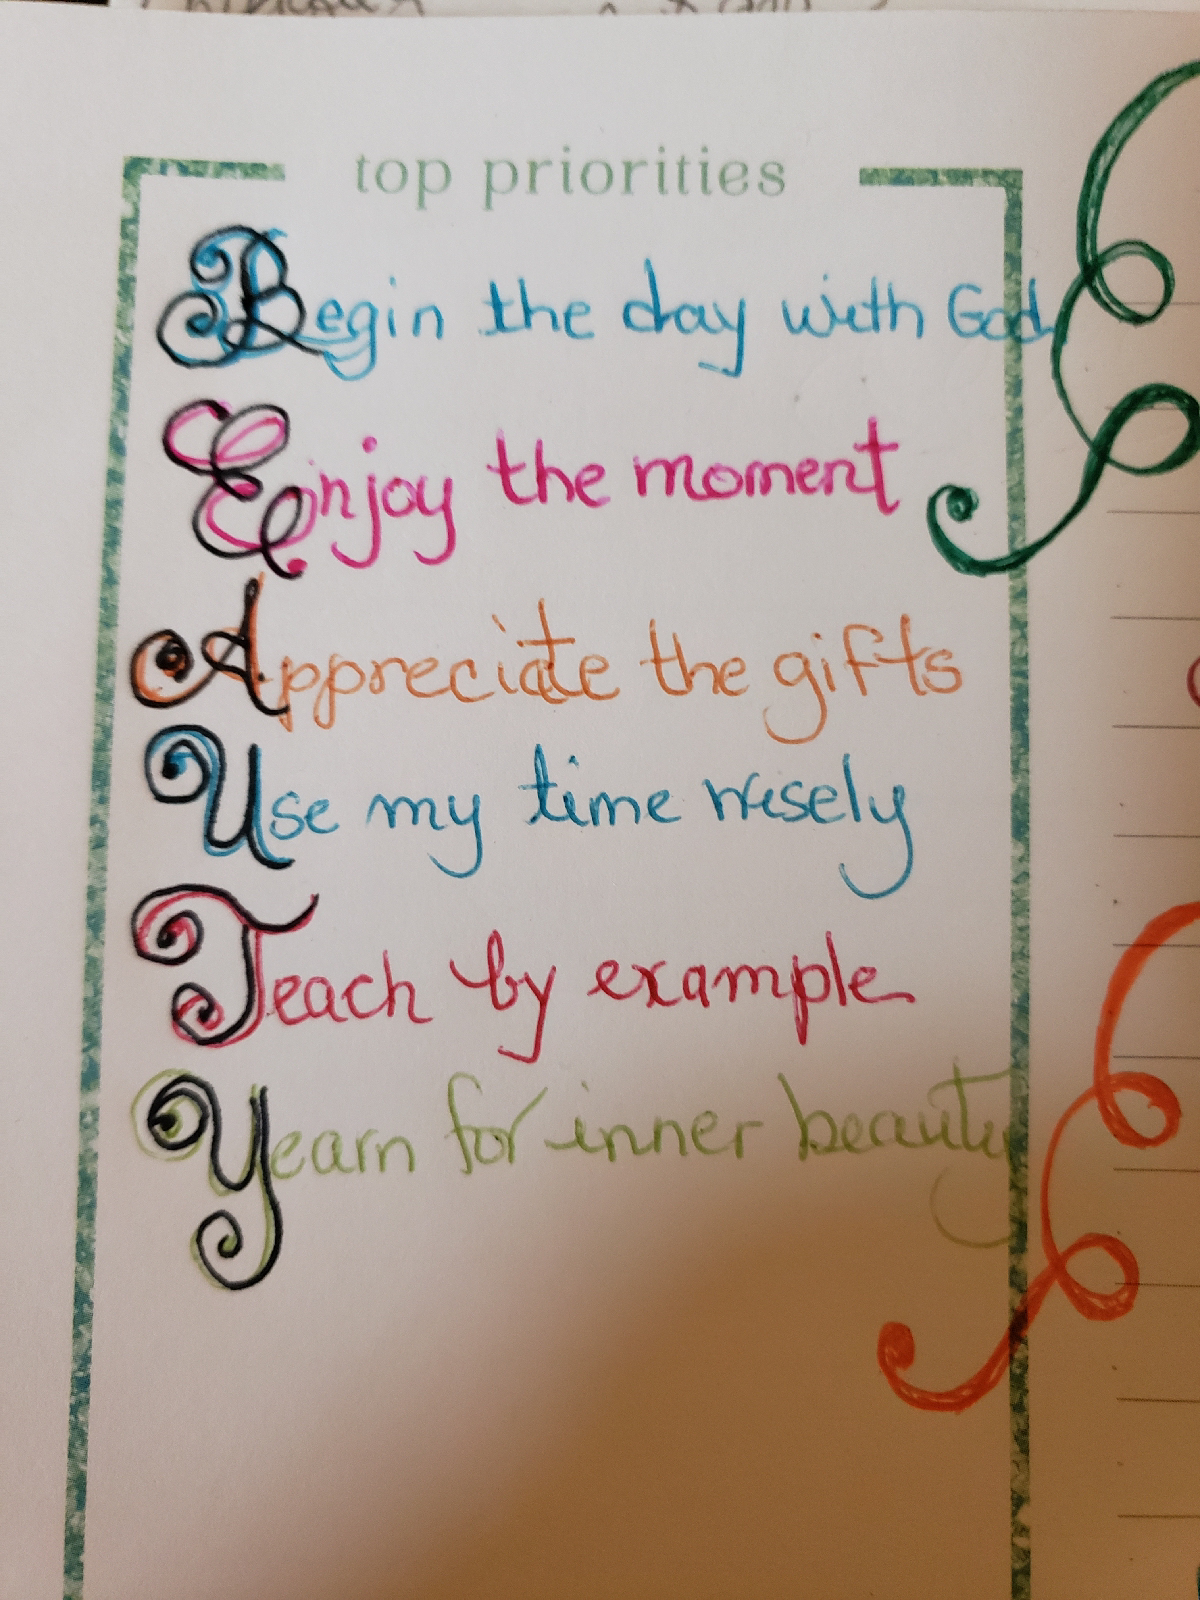 top priorities
Begin the day with God
Enjoy the moment
Appreciate the gifts
Use my time wisely
Teach by example
Yearn for inner beauty